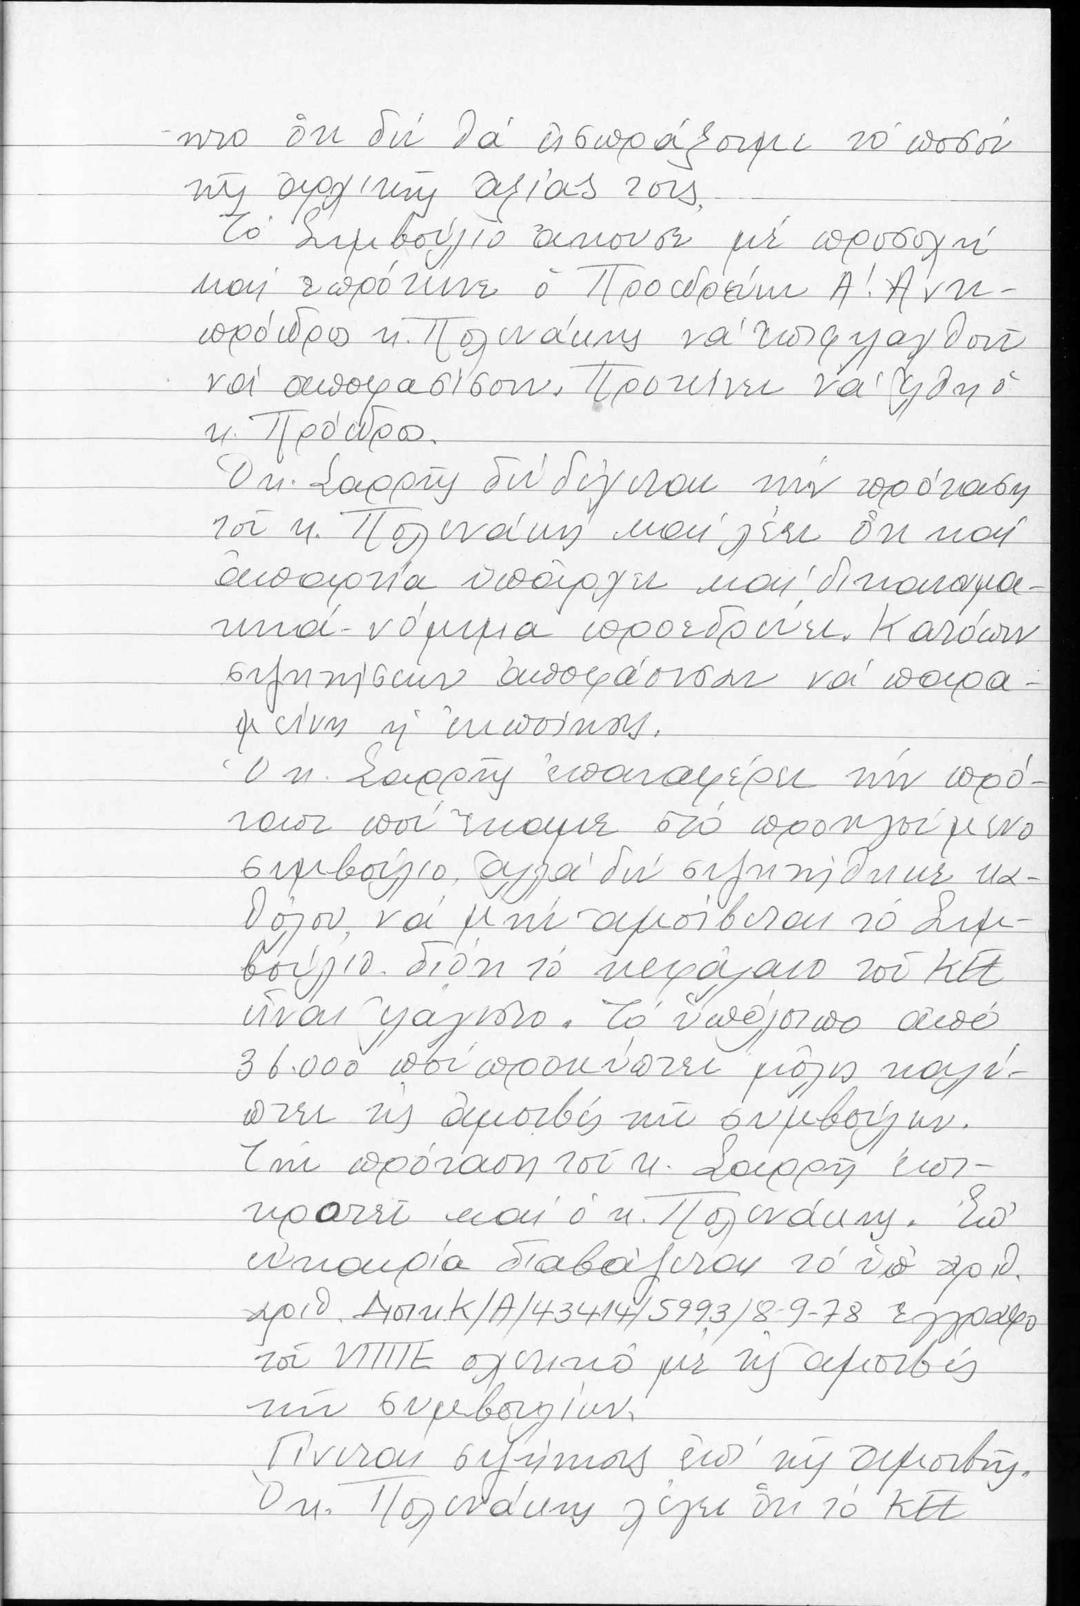 -πτο ὅτι δέν θά εἰσπράξουμε τό ποσόν
τῆς ἀρχικῆς ἀξίας τους.
Τό Συμβούλιο ἄκουσε μέ προσοχή
καί ἐπρότεινε ὁ Προεδρεύων Α'. Ἀντι-
πρόεδρος κ. Πολενάκης νά ἐπιφυλαχθοῦν
νά ἀποφασίσουν. Προτείνει νά ἔλθη ὁ
κ. Πρόεδρος.
Ὁ κ. Σαρρῆς δέν δέχεται τήν πρόταση
τοῦ κ. Πολενάκη καί λέει ὅτι καί
ἀπαρτία ὑπάρχει καί δικαιωμα-
τικά-νόμιμα προεδρεύει. Κατόπιν
συζητήσεων ἀποφάσισαν νά παρα-
μείνη ἡ ἐκποίησις.
Ὁ κ. Σαρρῆς ἐπαναφέρει τήν πρό-
ταση πού ἔκαμε στό προηγούμενο
συμβούλιο, ἀλλά δέν συζητήθηκε κα-
θόλου, νά μήν ἀμοίβεται τό Συμ-
βούλιο. διότι τό κεφάλαιο τοῦ ΚΠΕ
εἶναι ἐλάχιστο. Τό ὑπόλοιπο ἀπό
36.000 πού προκύπτει μόλις καλύ-
πτει τίς ἀμοιβές τῶν συμβούλων.
Τήν πρόταση τοῦ κ. Σαρρῆ ἐπι-
κροτεῖ καί ὁ κ. Πολενάκης. Ἐπ'
εὐκαιρία διαβάζεται τό ὑπ' ἀριθ.
ἀριθ. Διοικ Κ/Α/43414/5993/8-9-78 ἔγγραφο
τοῦ ΥΠΠΕ σχετικό με τίς ἀμοιβές
τῶν συμβουλίων.
Γίνεται συζήτησις ἐπί τῆς ἀμοιβῆς.
Ὁ κ. Πολενάκης λέγει ὅτι τό ΚΠΕ